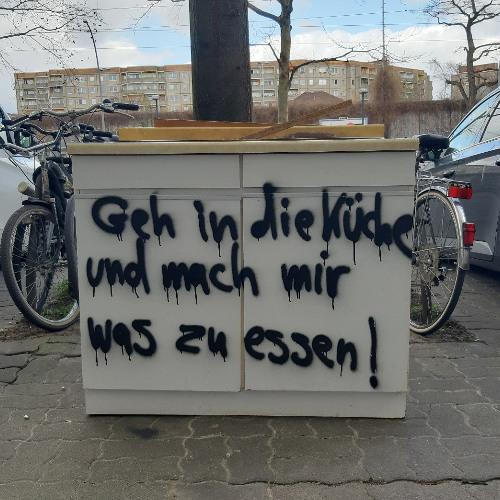 Geh in die Küche
und mach mir
was zu essen!